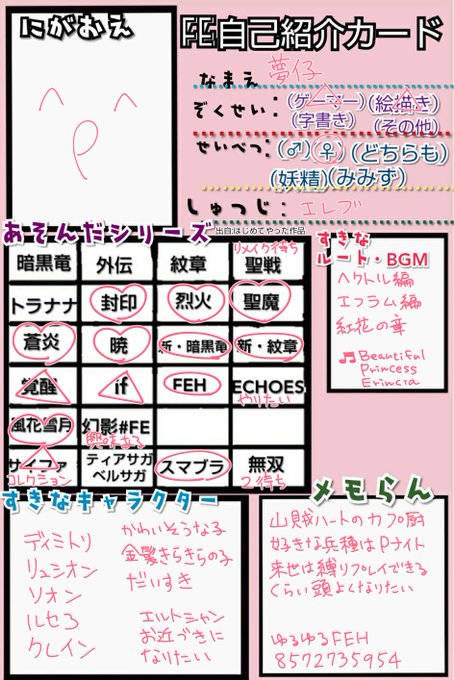 にがおえ
FE自己紹介カード
なまえ 夢仔
ぞくせい: (ゲーマー)(絵描き)
(字書き) (その他)
せいべつ: (♂)(♀)(どちらも)
(妖精)(みみず)
しゅつじ: エレブ
出自:はじめてやった作品
あそんだシリーズ
リメイク待ち
暗黒竜 外伝 紋章 聖戦
トラナナ 封印 烈火 聖魔
蒼炎 暁 新・暗黒竜 新・紋章
覚醒 if FEH ECHOES
やりたい
風花雪月 幻影#FE
興味ある
サイファ ティアサガ スマブラ 無双
コレクション ベルサガ 2待ち
すきな
ルート・BGM
ヘクトル編
エフラム編
紅花の章
♫ Beautiful
Princess
Erincia
すきなキャラクター
ディミトリ
リュシオン
ソオン
ルセア
クレイン
かわいそうな子
金髪きらきらの子
だいすき
エルトシャン
お近づきに
なりたい
メモらん
山賊ハートのカプ厨
好きな兵種はPナイト
来世は縛りプレイできる
くらい頭よくなりたい
ゆるゆるFEH
8572735954